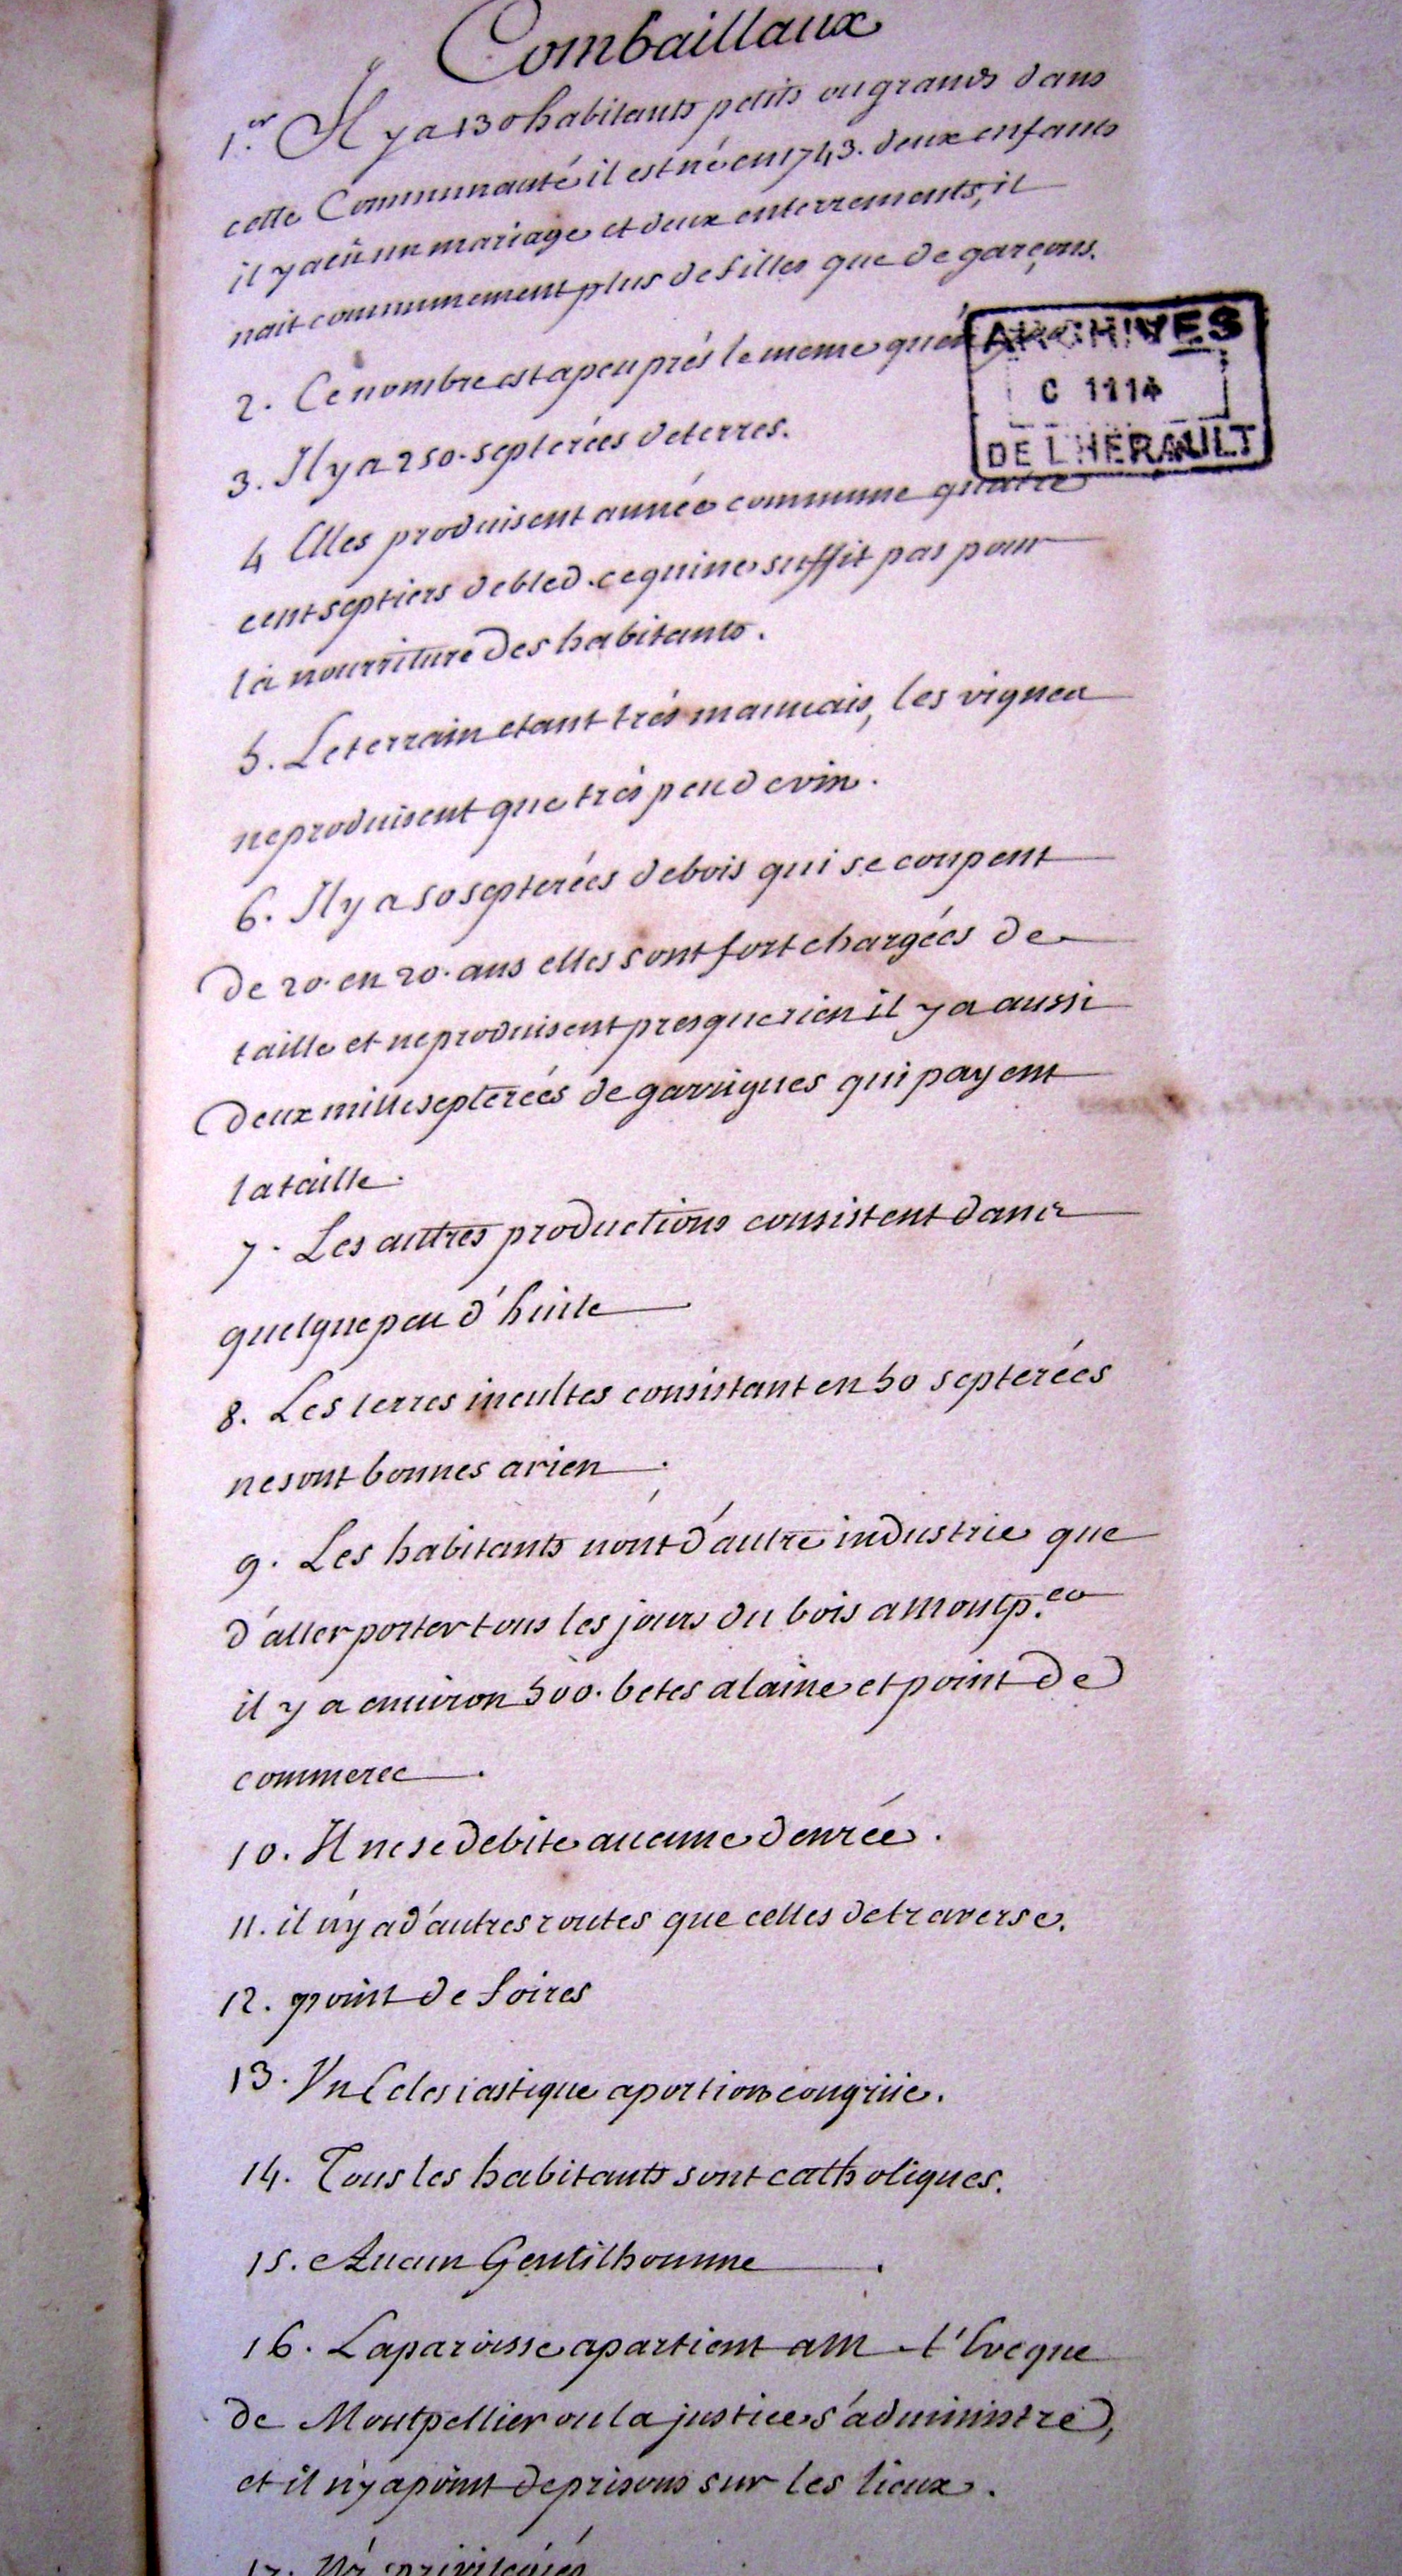 Combaillaux
1.er Il y a 130 habitants petits ou grands dans
cette Communauté il est né en 1743. deux enfants
il y a eû un mariage et deux enterrements, il
nait communement plus de filles que de garçons.
2. Ce nombre est apeu prés le meme qu'en
3. Il y a 250. septerées de terres.
4 Elles produisent année commune quatre
cent septiers de bled. ce qui ne suffit pas pour
la nourriture des habitants.
5. Le terrain etant trés mauvais, les vignes
ne produisent que trés peu de vin.
6. Il y a 50 septerées de bois qui se coupent
de 20. en 20. ans elles sont fort chargées de
taille et ne produisent presque rien il y a aussi
deux mille septerées de garrigues qui payent
la taille.
7. Les autres productions consistent dans
quelque peu d'huile
8. Les terres incultes consistant en 50 septerées
ne sont bonnes a rien.
9. Les habitants n'ont d'autre industrie que
d'aller porter tous les jours du bois a Montp.er
il y a environ 500. betes a laine et point de
commerce.
10. Il ne se debite aucune denrée.
11. il n'y a d'autres routes que celles de traverse.
12. point de foires
13. Un Eclesiastique a portion congrüe.
14. Tous les habitants sont catholiques.
15. Aucun Gentilhomme.
16. La paroisse apartient a M l'Eveque
de Montpellier ou la justice s'administre,
et il n'y a point de prisons sur les lieux.
17. Ny privilegiés
ARCHIVES
C 1114
DE L'HERAULT